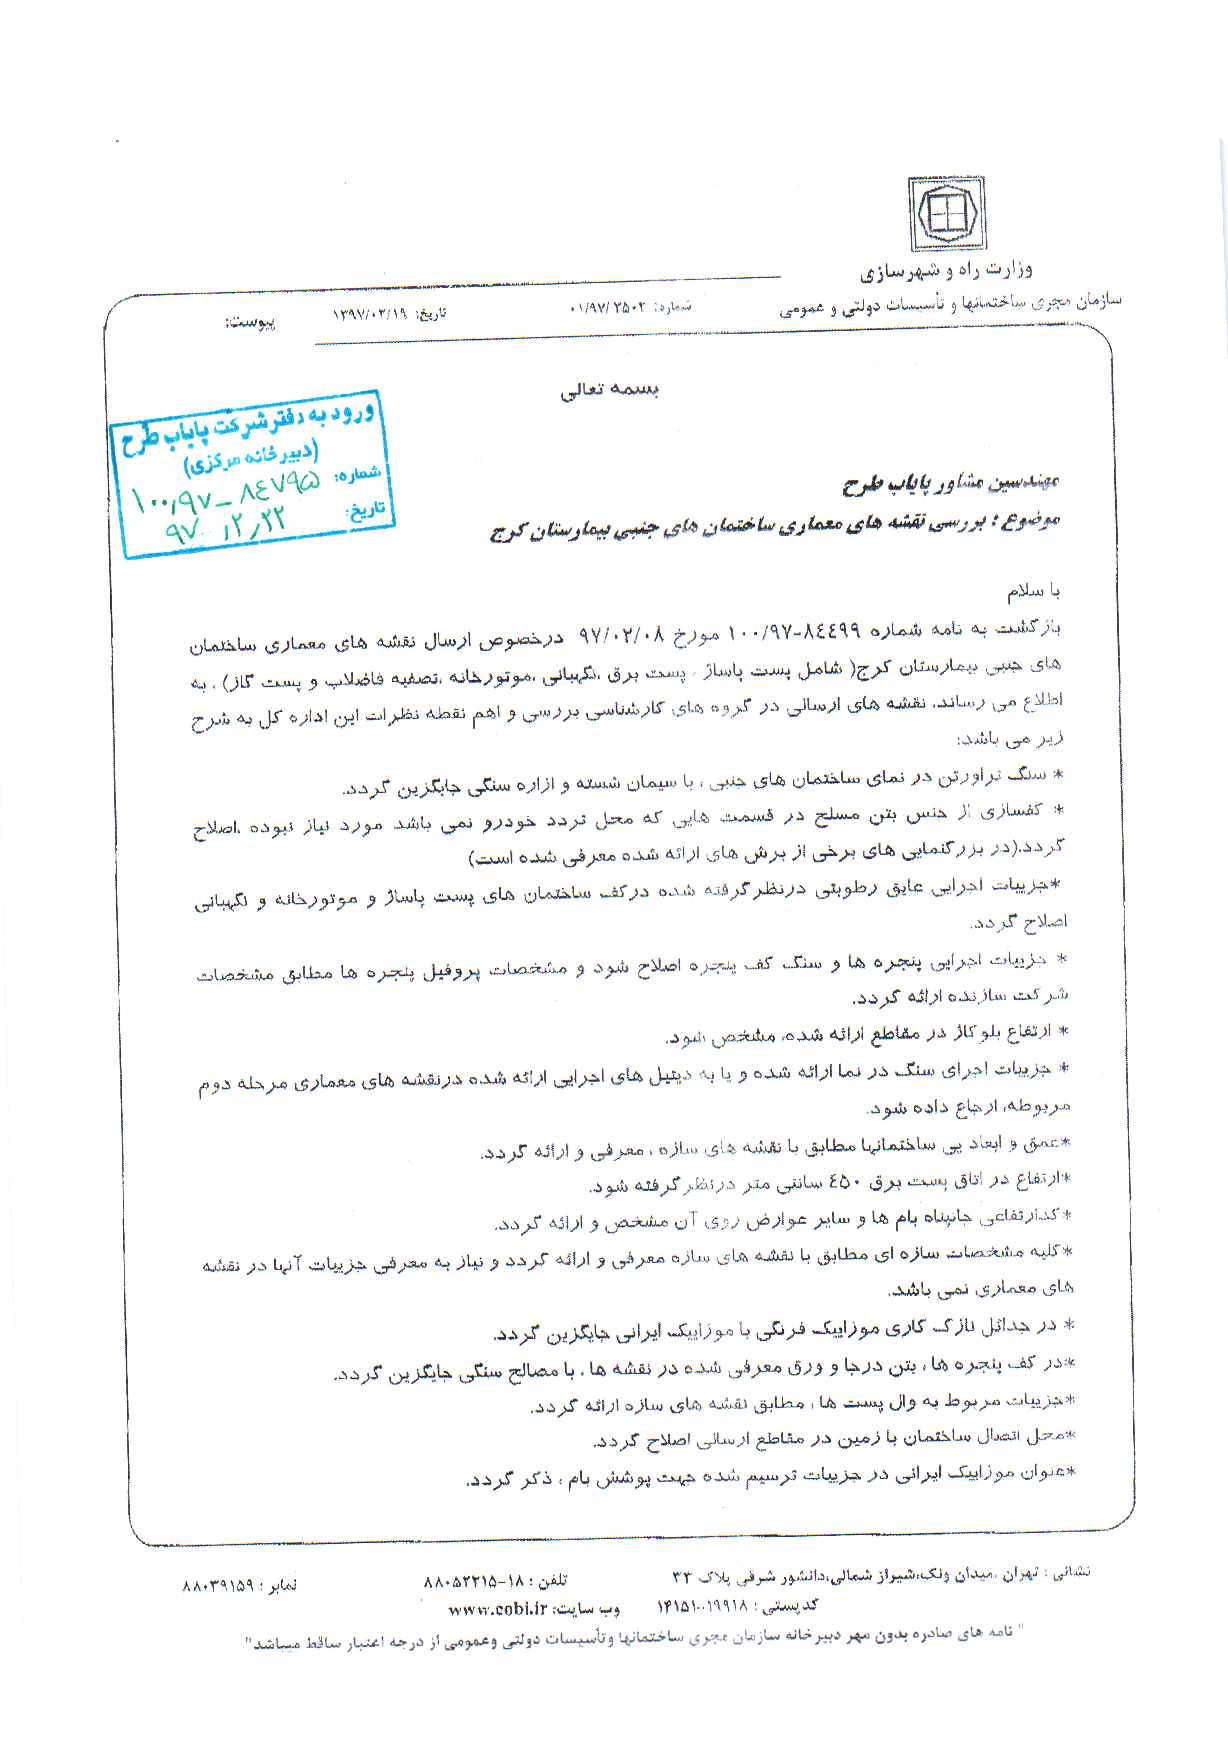 وزارت راه و شهرسازی
سازمان مجری ساختمانها و تأسیسات دولتی و عمومی
شماره: ۰۱/۹۷/۲۵۰۲
تاریخ: ۱۳۹۷/۰۲/۱۹
پیوست:
بسمه تعالی
ورود به دفتر شرکت پایاب طرح
(دبیرخانه مرکزی)
شماره: ۱۰۰٫۹۷-۸۴۷۹۵
تاریخ: ۹۷٫۲٫۲۲
مهندسین مشاور پایاب طرح
موضوع : بررسی نقشه های معماری ساختمان های جنبی بیمارستان کرج
با سلام
بازگشت به نامه شماره ۸٤٤۹۹-۱۰۰/۹۷ مورخ ۹۷/۰۲/۰۸ درخصوص ارسال نقشه های معماری ساختمان
های جنبی بیمارستان کرج( شامل پست پاساژ ، پست برق ،نگهبانی ،موتورخانه ،تصفیه فاضلاب و پست گاز) ، به
اطلاع می رساند، نقشه های ارسالی در گروه های کارشناسی بررسی و اهم نقطه نظرات این اداره کل به شرح
زیر می باشد:
* سنگ تراورتن در نمای ساختمان های جنبی ، با سیمان شسته و ازاره سنگی جایگزین گردد.
* کفسازی از جنس بتن مسلح در قسمت هایی که محل تردد خودرو نمی باشد مورد نیاز نبوده ،اصلاح
گردد.(در بزرگنمایی های برخی از برش های ارائه شده معرفی شده است)
*جزییات اجرایی عایق رطوبتی درنظرگرفته شده درکف ساختمان های پست پاساژ و موتورخانه و نگهبانی
اصلاح گردد.
* جزییات اجرایی پنجره ها و سنگ کف پنجره اصلاح شود و مشخصات پروفیل پنجره ها مطابق مشخصات
شرکت سازنده ارائه گردد.
* ارتفاع بلوکاژ در مقاطع ارائه شده، مشخص شود.
* جزییات اجرای سنگ در نما ارائه شده و یا به دیتیل های اجرایی ارائه شده درنقشه های معماری مرحله دوم
مربوطه، ارجاع داده شود.
*عمق و ابعاد پی ساختمانها مطابق با نقشه های سازه ، معرفی و ارائه گردد.
*ارتفاع در اتاق پست برق ٤٥۰ سانتی متر درنظرگرفته شود.
*کدارتفاعی جانپناه بام ها و سایر عوارض روی آن مشخص و ارائه گردد.
*کلیه مشخصات سازه ای مطابق با نقشه های سازه معرفی و ارائه گردد و نیاز به معرفی جزییات آنها در نقشه
های معماری نمی باشد.
* در جداول نازک کاری موزاییک فرنگی با موزاییک ایرانی جایگزین گردد.
*در کف پنجره ها ، بتن درجا و ورق معرفی شده در نقشه ها ، با مصالح سنگی جایگزین گردد.
*جزییات مربوط به وال پست ها ، مطابق نقشه های سازه ارائه گردد.
*محل اتصال ساختمان با زمین در مقاطع ارسالی اصلاح گردد.
*عنوان موزاییک ایرانی در جزییات ترسیم شده جهت پوشش بام ، ذکر گردد.
نشانی : تهران ،میدان ونک،شیراز شمالی،دانشور شرقی پلاک ۳۳ تلفن : ۱۸-۸۸۰۵۲۲۱۵ نمابر : ۸۸۰۳۹۱۵۹
کدپستی : ۱۴۱۵۱۰۰۱۹۹۱۸ وب سایت: www.cobi.ir
" نامه های صادره بدون مهر دبیرخانه سازمان مجری ساختمانها وتأسیسات دولتی وعمومی از درجه اعتبار ساقط میباشد"